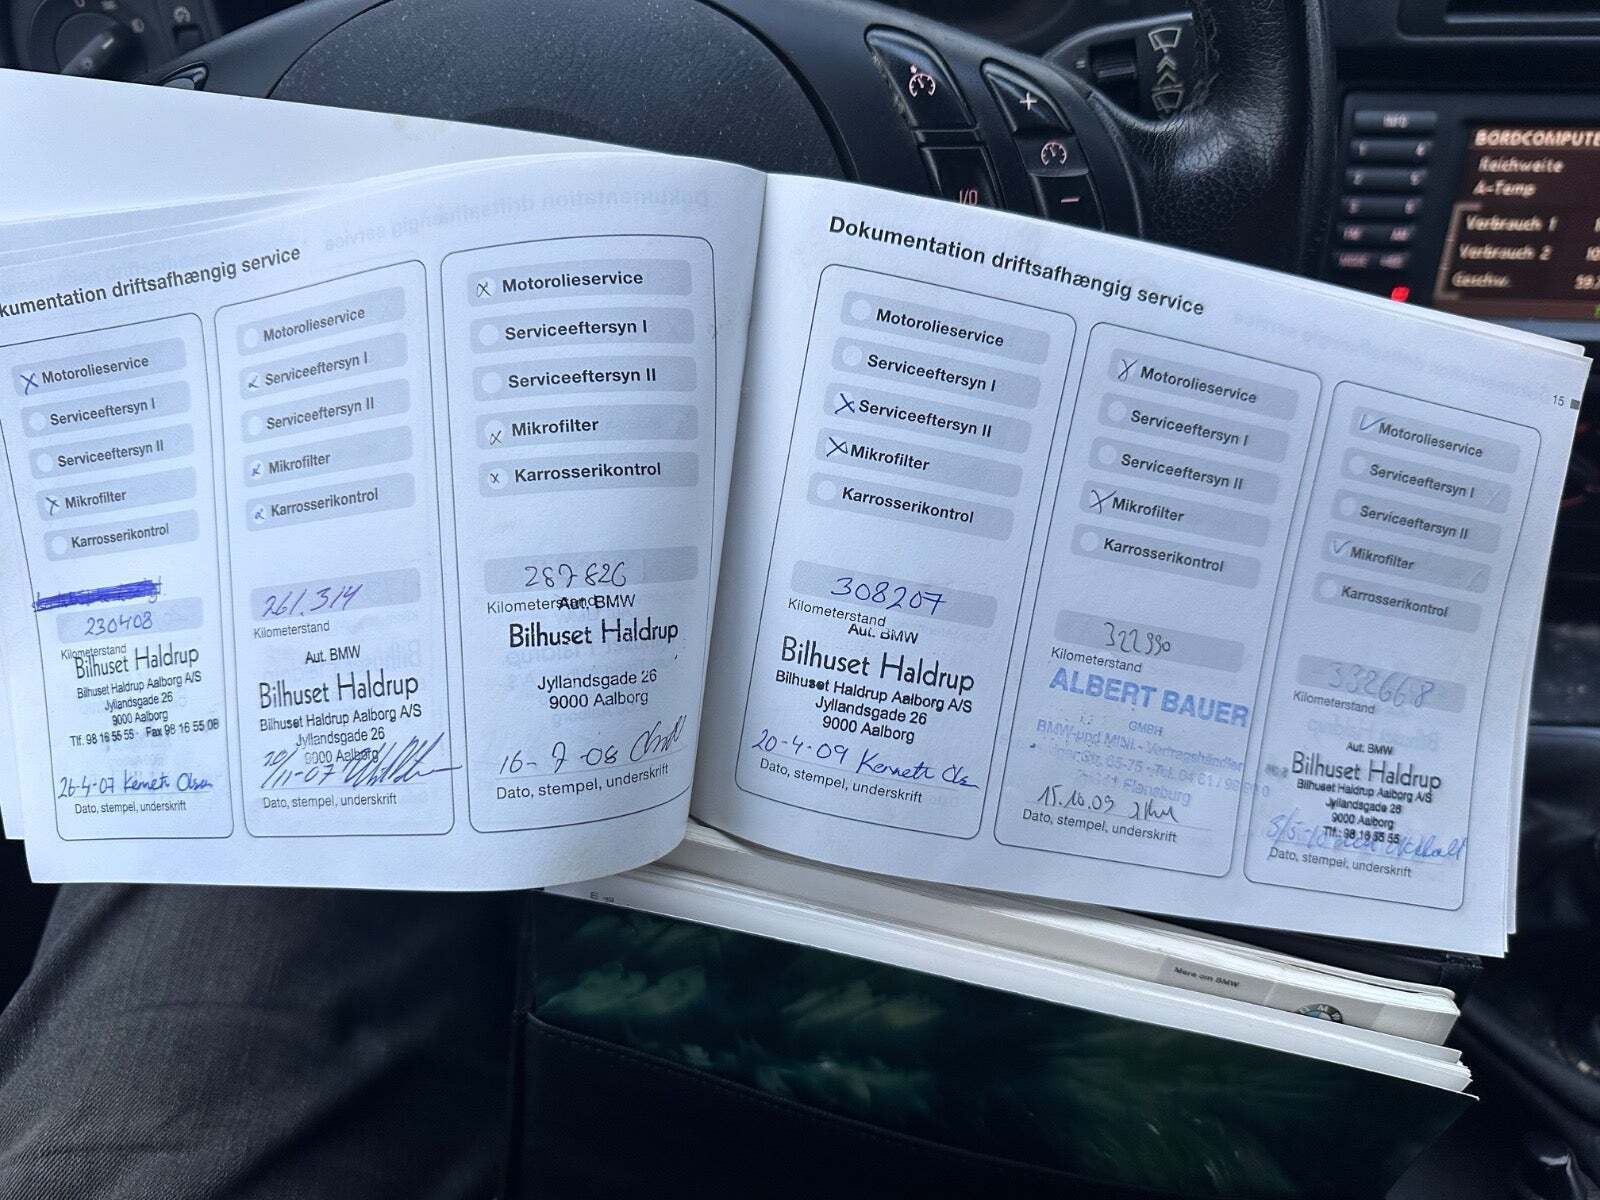 kumentation driftsafhængig service
Motorolieservice
Serviceeftersyn I
Serviceeftersyn II
Mikrofilter
Karrosserikontrol
230408
Kilometerstand
Bilhuset Haldrup
Bilhuset Haldrup Aalborg A/S
Jyllandsgade 26
9000 Aalborg
Tlf. 98 16 55 55 Fax 98 16 55 08
26-4-07 Kenneth Olsen
Dato, stempel, underskrift
Motorolieservice
Serviceeftersyn I
Serviceeftersyn II
Mikrofilter
Karrosserikontrol
261.314
Kilometerstand
Aut. BMW
Bilhuset Haldrup
Bilhuset Haldrup Aalborg A/S
Jyllandsgade 26
9000 Aalborg
20/11-07
Dato, stempel, underskrift
Motorolieservice
Serviceeftersyn I
Serviceeftersyn II
Mikrofilter
Karrosserikontrol
287826
Kilometerstand
Aut. BMW
Bilhuset Haldrup
Jyllandsgade 26
9000 Aalborg
16-7-08
Dato, stempel, underskrift
Dokumentation driftsafhængig service
Motorolieservice
Serviceeftersyn I
Serviceeftersyn II
Mikrofilter
Karrosserikontrol
308207
Kilometerstand
Aut. BMW
Bilhuset Haldrup
Bilhuset Haldrup Aalborg A/S
Jyllandsgade 26
9000 Aalborg
20-4-09 Kenneth Olsen
Dato, stempel, underskrift
Motorolieservice
Serviceeftersyn I
Serviceeftersyn II
Mikrofilter
Karrosserikontrol
322990
Kilometerstand
ALBERT BAUER
GMBH
BMW-und MINI - Vertragshändler
Flensburg
15.10.09
Dato, stempel, underskrift
15
Motorolieservice
Serviceeftersyn I
Serviceeftersyn II
Mikrofilter
Karrosserikontrol
332668
Kilometerstand
Aut. BMW
Bilhuset Haldrup
Bilhuset Haldrup Aalborg A/S
Jyllandsgade 26
9000 Aalborg
Tlf.: 98 16 55 55
5/5-10
Dato, stempel, underskrift
I/O
INFO
BORDCOMPUTE
Reichweite
A-Temp
Verbrauch 1
Verbrauch 2
Geschw.
Mere om BMW